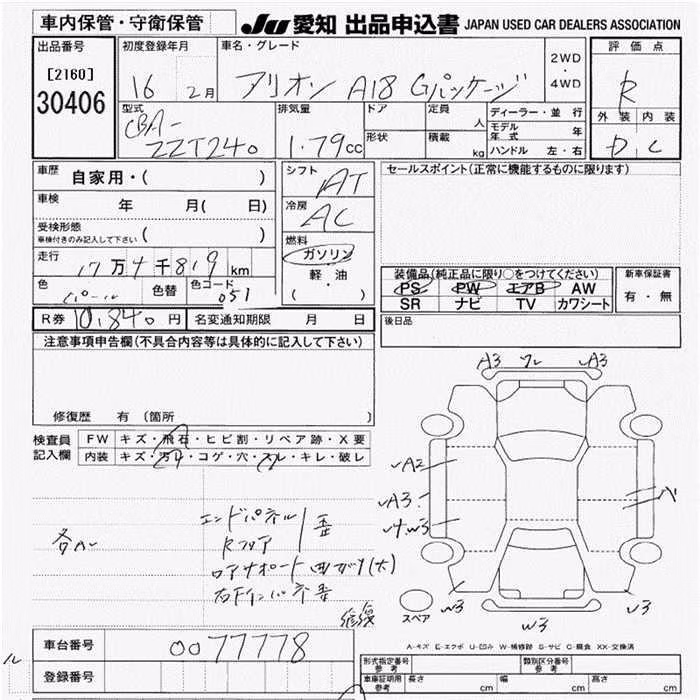 車内保管・守衛保管
JU 愛知 出品申込書 JAPAN USED CAR DEALERS ASSOCIATION
出品番号
[2160]
30406
初度登録年月
16 2月
車名・グレード
アリオン A18 Gパッケージ
2WD
・
4WD
評価点
R
外装 内装
D C
型式
CBA-
ZZT240
排気量
1.79cc
ドア
形状
定員
人
積載
kg
ディーラー・並行
モデル年式 年
ハンドル 左・右
車歴
自家用・( )
車検
年 月( 日)
受検形態
車検付きのみ記入して下さい ( )
走行
17万 千819km
色
パール
色替
色コード
051
シフト
AT
冷房
AC
燃料
ガソリン
・
軽・油
( )
セールスポイント(正常に機能するものに限ります)
装備品(純正品に限り○をつけてください)
PS PW エアB AW
SR ナビ TV カワシート
新車保証書
有・無
R券 10,840円 名変通知期限 月 日
後日品
注意事項申告欄(不具合内容等は具体的に記入して下さい)
修復歴 有 〔箇所 〕
検査員
記入欄
FW キズ・飛石・ヒビ割・リペア跡・X要
内装 キズ・汚レ・コゲ・穴・スレ・キレ・破レ
エンドパネル
Rフロア
歪
ロアサポート曲がり(大)
右下インパネ歪
修復
A3 ワレ A3
A2
A3
W3
W3
W3
W3
スペア
A-キズ E-エクボ U-凹み W-補修跡 S-サビ C-腐食 XX-交換済
車台番号
0077778
登録番号
ル
形式指定番号
参考
類別区分番号
参考
車庫証明用
参考
長さ cm
幅 cm
高さ cm